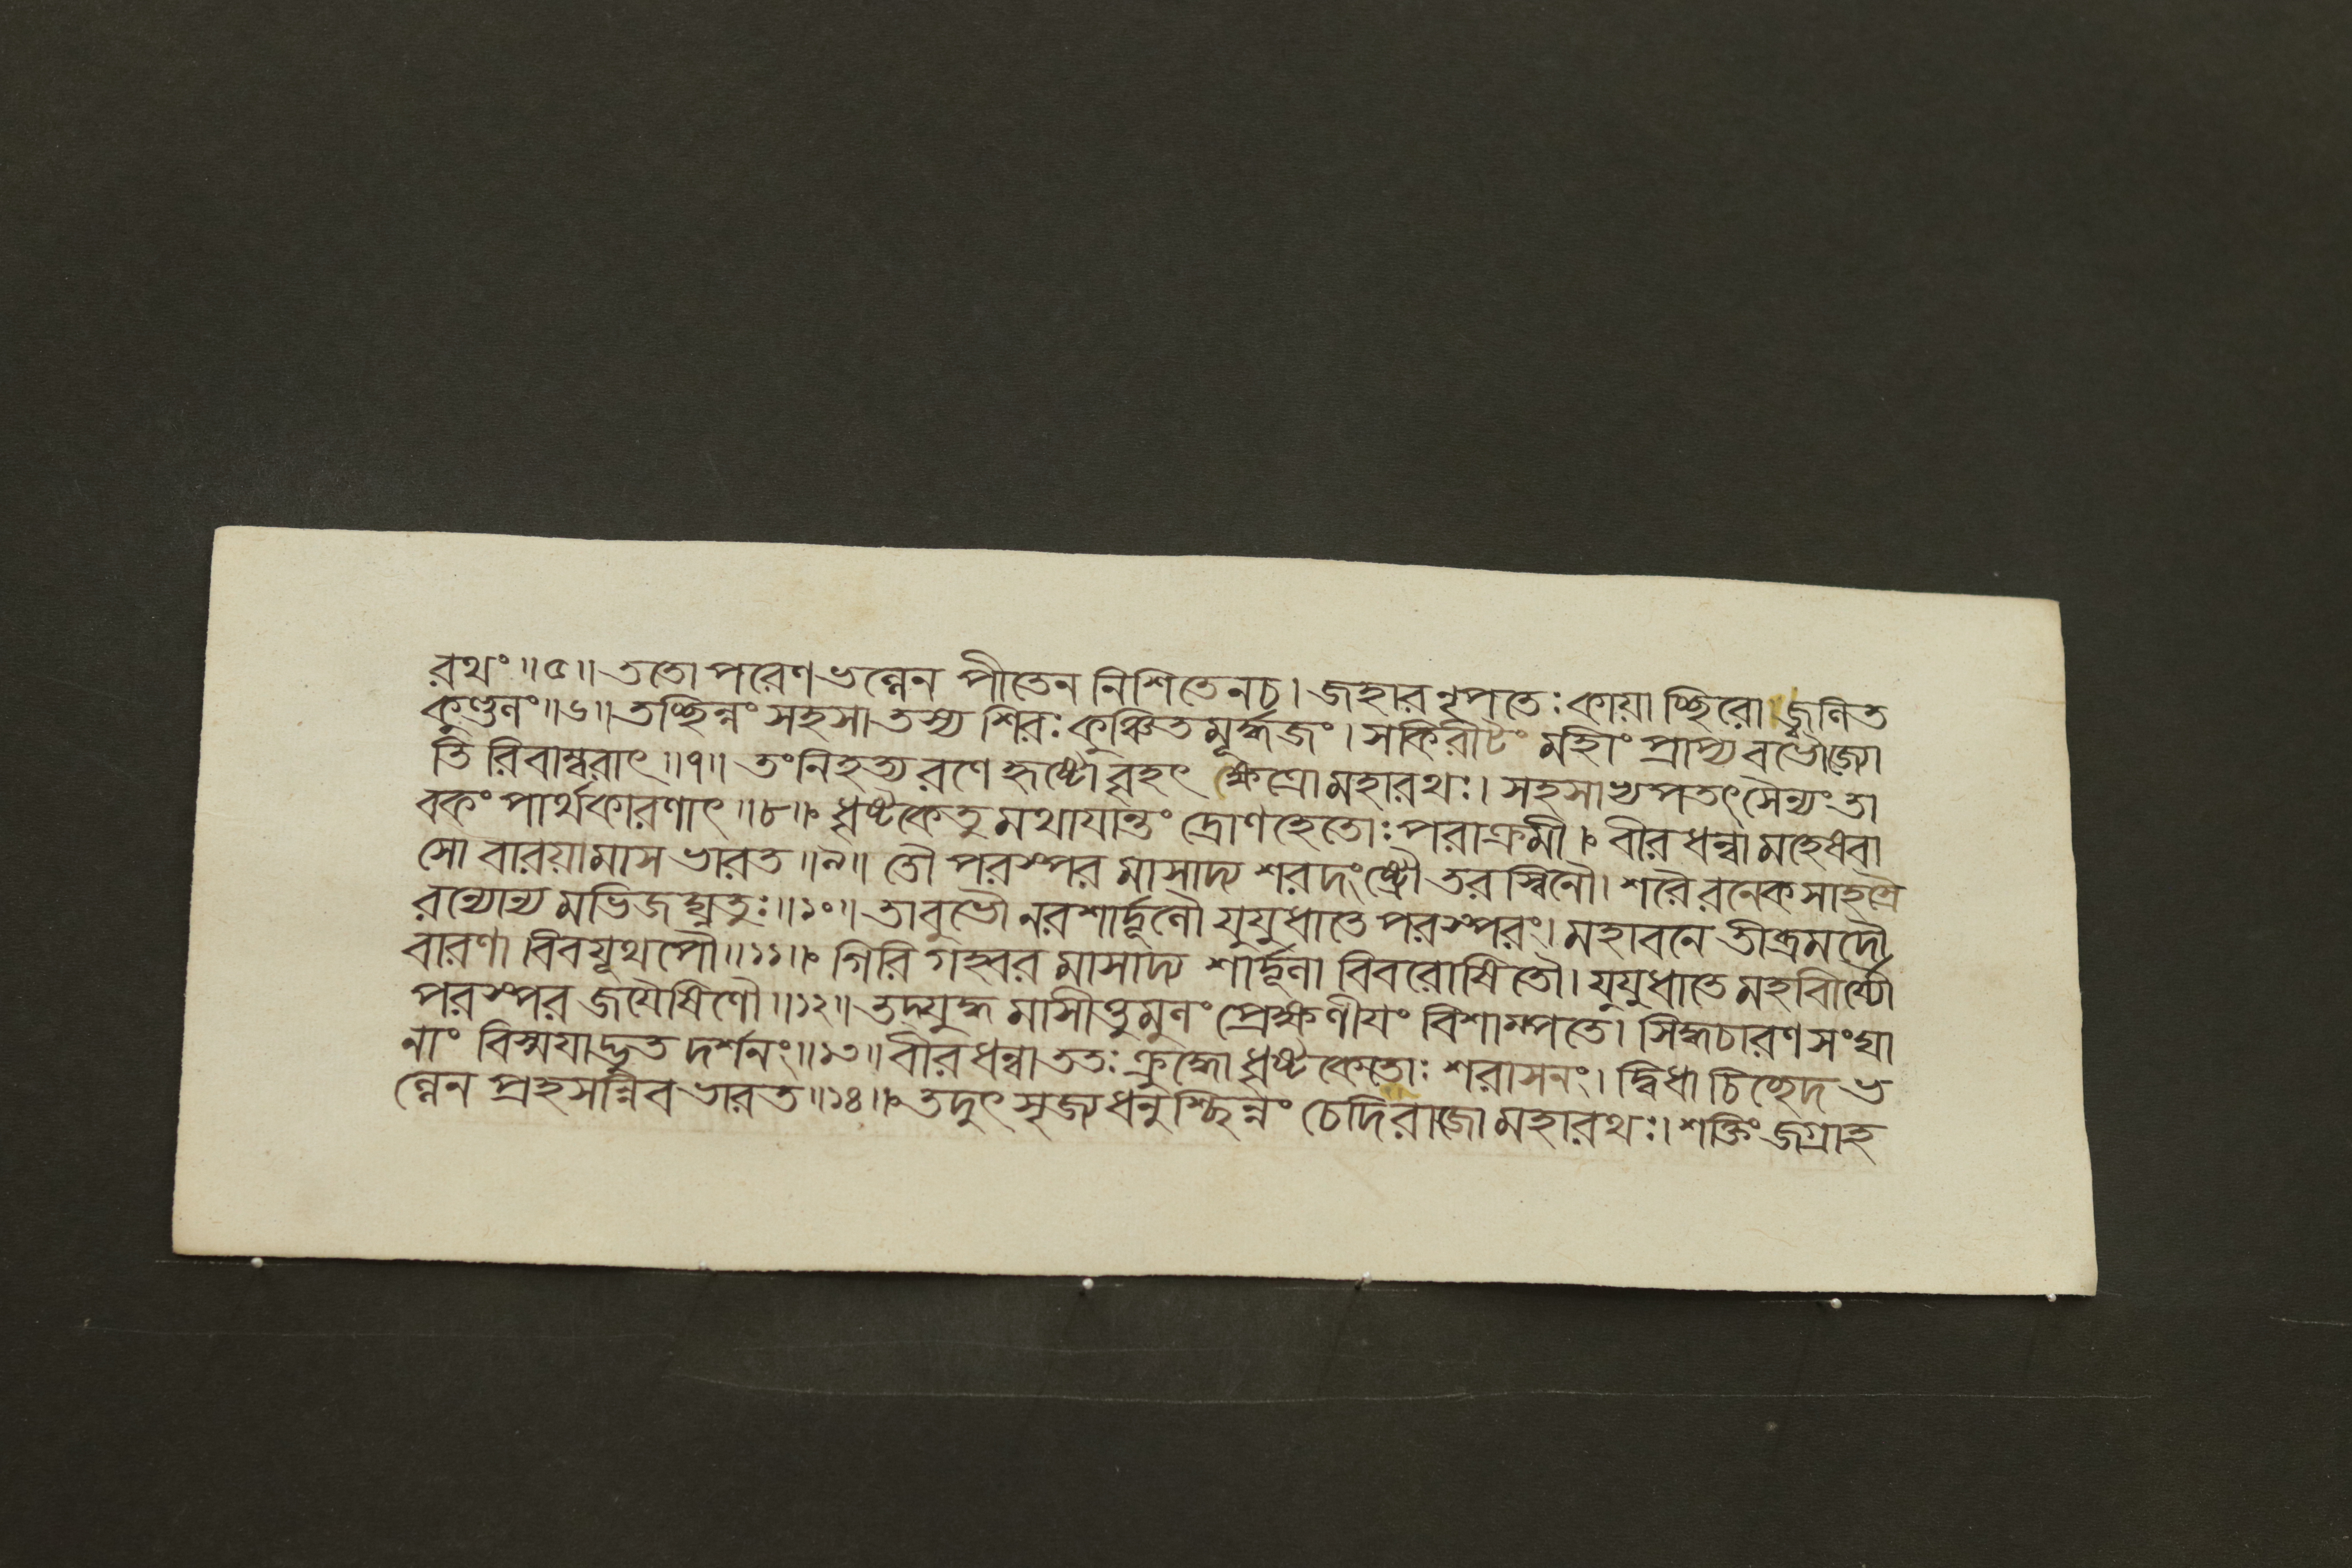 রথঃ॥৫॥ ততোপরেণভল্লেন পীতেন নিশিতেনচ। জহারনৃপতেঃকায়াচ্ছিরোজ্বলিত
কুণ্ডলং॥৬॥ তচ্ছিন্নং সহসা তস্য শিরঃকুঞ্চিতমূর্দ্ধজং। সকিরীটং মহীং প্রাপ্য বভৌজ্যো
তি রিবাম্বরাৎ॥৭॥ তংনিহত্য রণে হৃষ্টোবৃহৎ ক্ষেত্রোমহারথঃ। সহসাভ্যপতৎসৈন্যং তা
বকং পার্থকারণাৎ॥৮॥ ধৃষ্টকেতুমথাযান্তং দ্রোণহেতোঃপরাক্রমী। বীরধন্বামহেষ্বা
সো বারয়ামাস ভারত॥৯॥ তৌ পরস্পরমাসাদ্য শরদংষ্ট্রৌ তরস্বিনৌ। শরৈরনেকসাহস্রৈ
রন্যোন্যমভিজঘ্নতুঃ॥১০॥ তাবুভৌনরশার্দ্দূলৌ যুযুধাতে পরস্পরং। মহাবনে তীব্রমদৌ
বারণা বিবযূথপৌ॥১১॥ গিরিগহ্বরমাসাদ্য শার্দ্দূলা বিবরোষিতৌ। যুযুধাতে মহাবীর্য্যৌ
পরস্পরজয়ৈষিণৌ॥১২॥ তদ্যুদ্ধমাসীত্তুমুলং প্রেক্ষণীয়ং বিশাম্পতে। সিদ্ধচারণসংঘা
নাং বিস্ময়াদ্ভুত দর্শনং॥১৩॥ বীরধন্বাততঃক্রুদ্ধোধৃষ্টকেতোঃ শরাসনং। দ্বিধা চিচ্ছেদ ভ
ল্লেন প্রহসন্নিব ভারত॥১৪॥ তদুৎসৃজ্যধনুশ্ছিন্নং চেদিরাজোমহারথঃ। শক্তিং জগ্রাহ